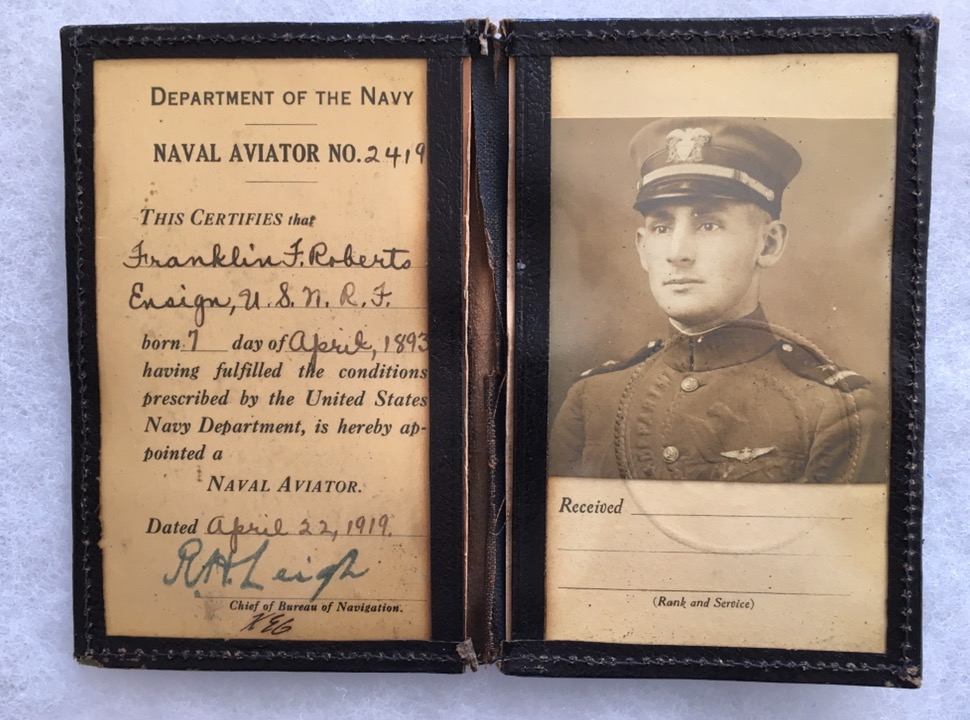 DEPARTMENT OF THE NAVY
NAVAL AVIATOR NO. 2419
THIS CERTIFIES that
Franklin F. Roberts
Ensign, U. S. N. R. F.
born 7 day of April, 1893
having fulfilled the conditions
prescribed by the United States
Navy Department, is hereby ap-
pointed a
NAVAL AVIATOR.
Dated April 22, 1919.
R.H. Leigh
Chief of Bureau of Navigation.
Received
(Rank and Service)